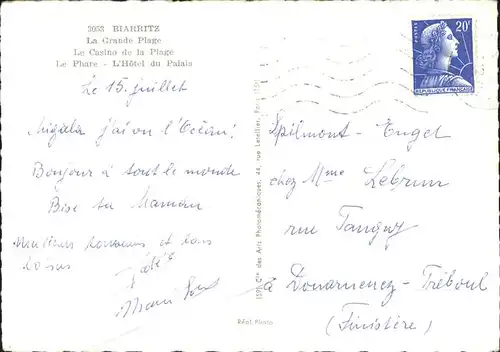 3053 BIARRITZ
La Grande Plage
Le Casino de la Plage
Le Phare - L'Hôtel du Palais
Le 15 juillet
j'ai vu l'Océan!
Bonjour à tout le monde
Bise ta Maman
Meilleurs souvenirs et bons
baisers
20F
POSTES
REPUBLIQUE FRANÇAISE
Cie des Arts Photomécaniques, 44, rue Letellier, Paris (15e)
Réal. Photo
Spilmont - Enget
chez Mme Lebrun
rue Tanguy
à Douarnenez - Tréboul
(Finistère)